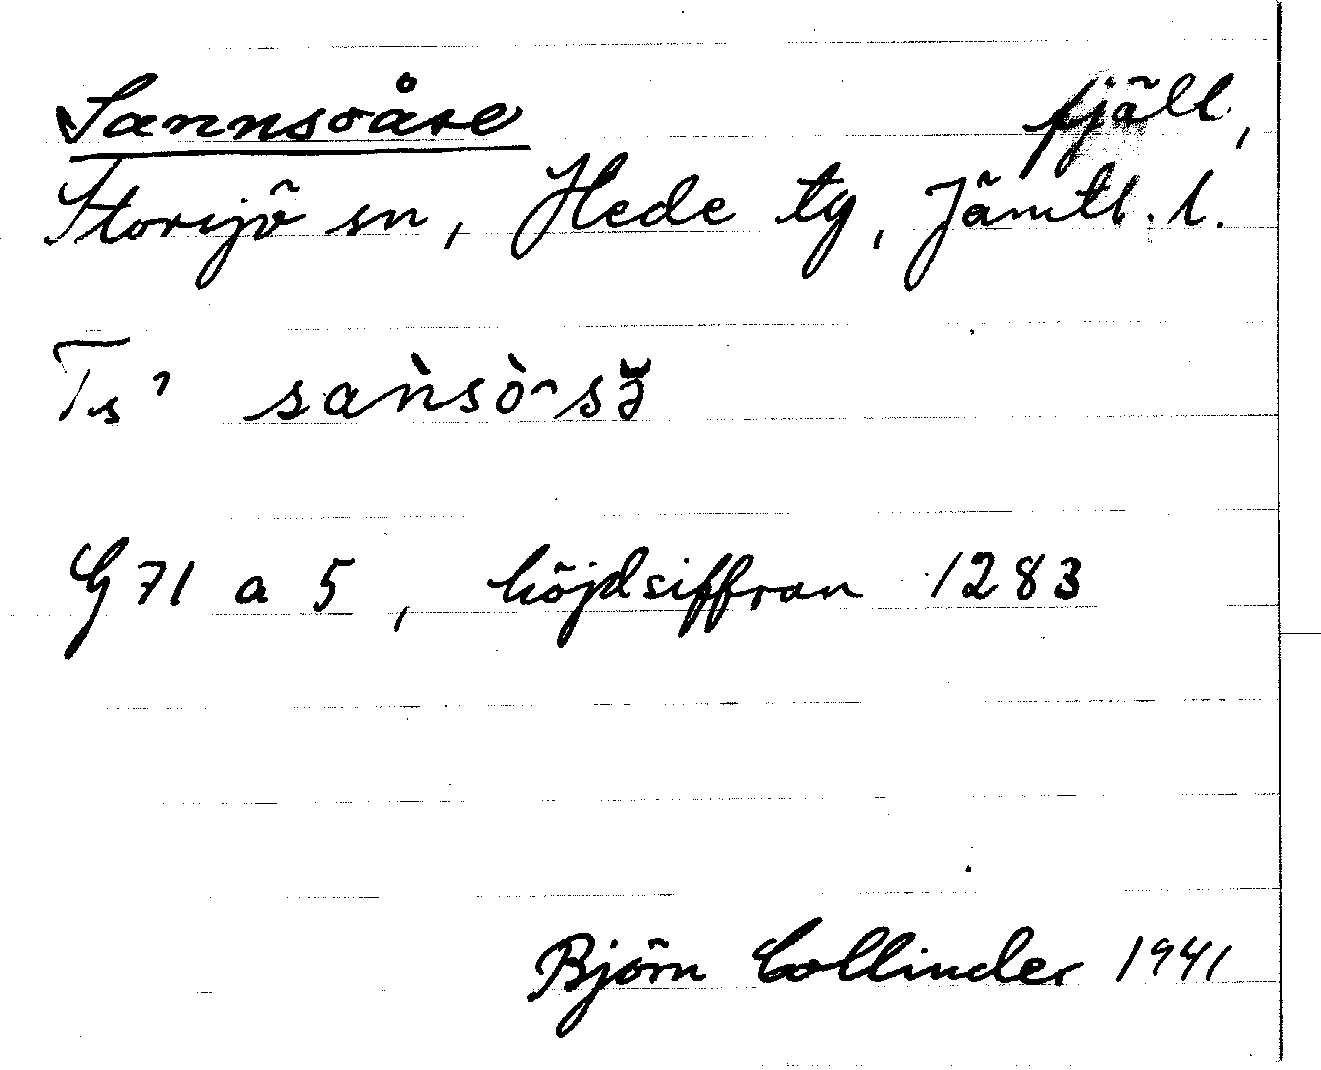 Sannsåse fjäll,
Storsjö sn, Hede tg, Jämtl. l.
Ts'
G 71 a 5, höjdsiffran 1283
Björn Collinder 1941